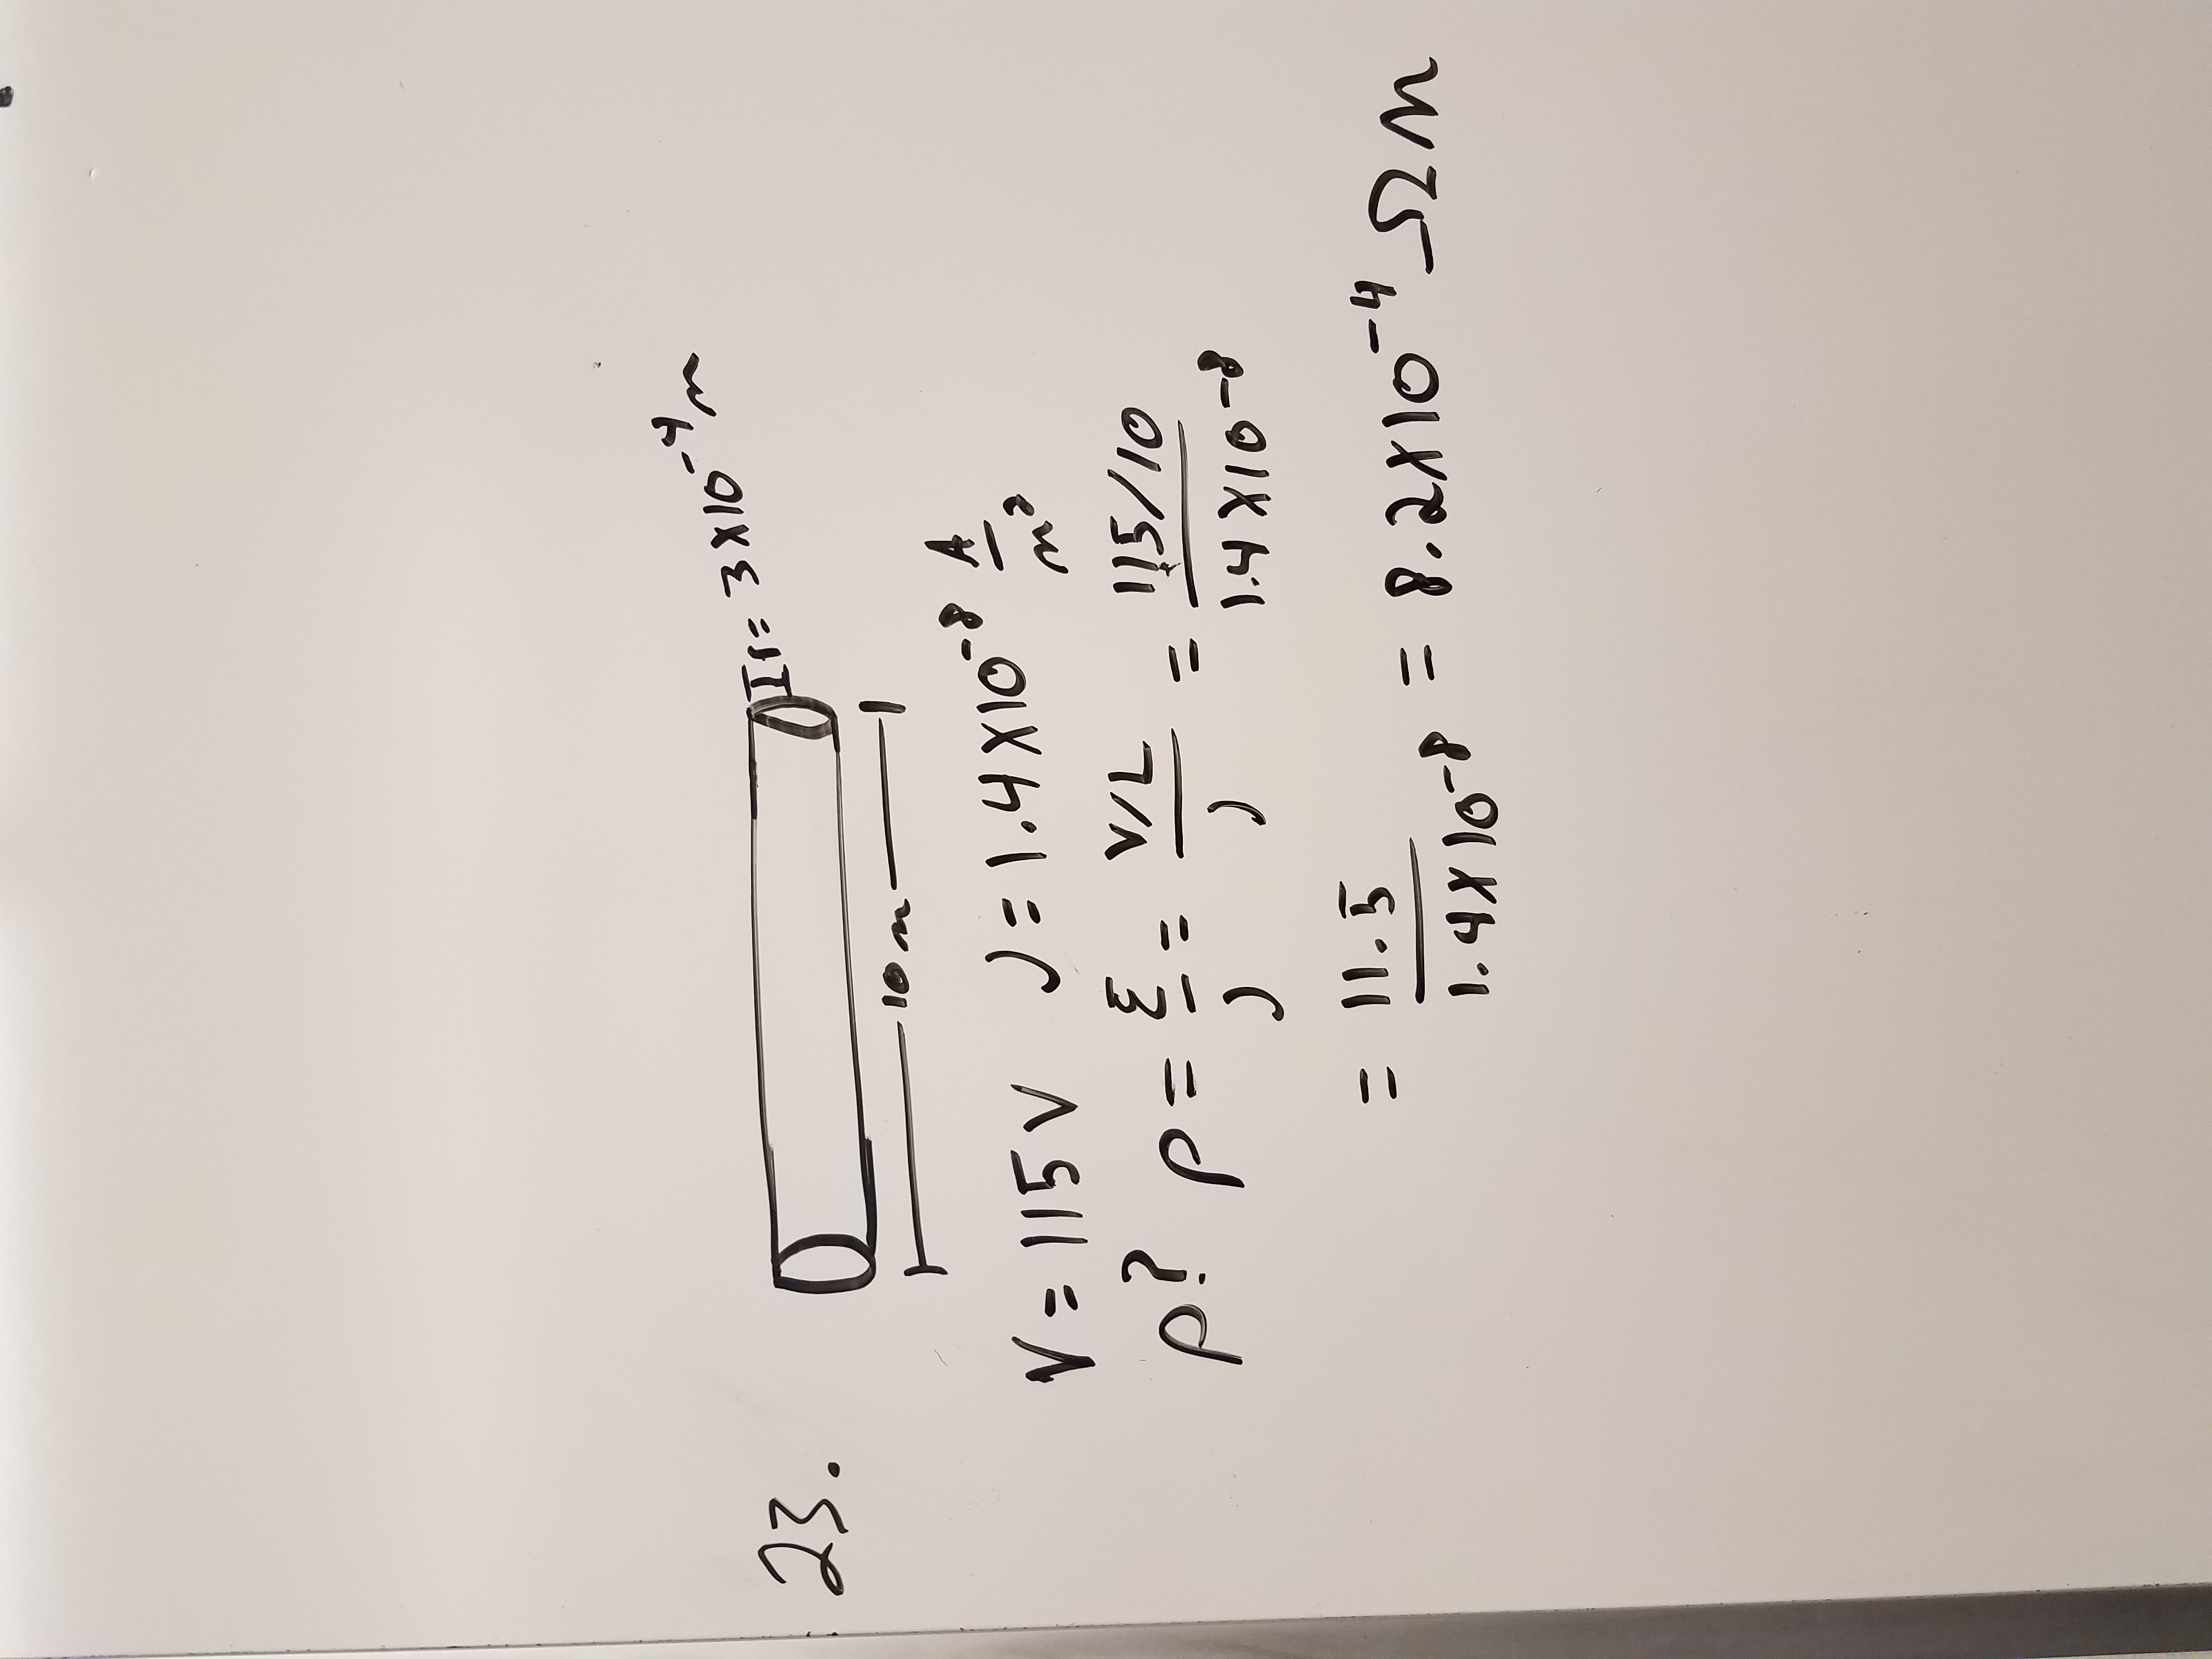 23.
r= 3X10⁻⁴m
10m
V=115V J=1.4X10⁻⁸ A/m²
ρ? ρ = ℰ/J = V/L / J = 115/10 / 1.4X10⁻⁸
= 11.5 / 1.4X10⁻⁸ = 8.2X10⁻⁴ Ωm